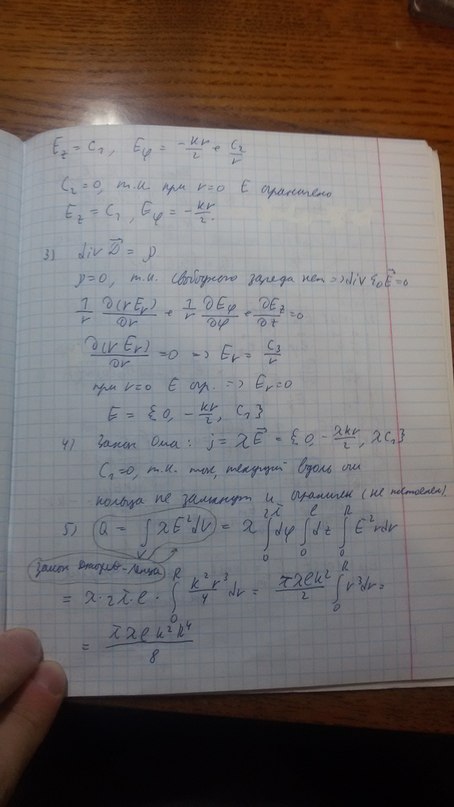 E_z = C_1, E_φ = -kr/2 + C_2/r
C_2 = 0, т.к. при r=0 E ограничено
E_z = C_1, E_φ = -kr/2.
3) div D⃗ = ρ
ρ=0, т.к. свободного заряда нет => div ε_0 E⃗ = 0
1/r ∂(rE_r)/∂r + 1/r ∂E_φ/∂φ + ∂E_z/∂z = 0
∂(rE_r)/∂r = 0 => E_r = C_3/r
при r=0 E огр. => E_r=0
E = {0, -kr/2, C_1}
4) Закон Ома: j = λE⃗ = {0, -λkr/2, λC_1}
C_1=0, т.к. ток, текущий вдоль оси
кольца не замкнут и ограничен (не постоянен)
5) Q = ∫ λE²dV = λ ∫_0^{2π} dφ ∫_0^ℓ dz ∫_0^R E² r dr
Закон Джоуля-Ленца
= λ·2π·ℓ· ∫_0^R k²r³/4 dr = πλℓk²/2 ∫_0^R r³dr =
= πλℓk²R⁴/8